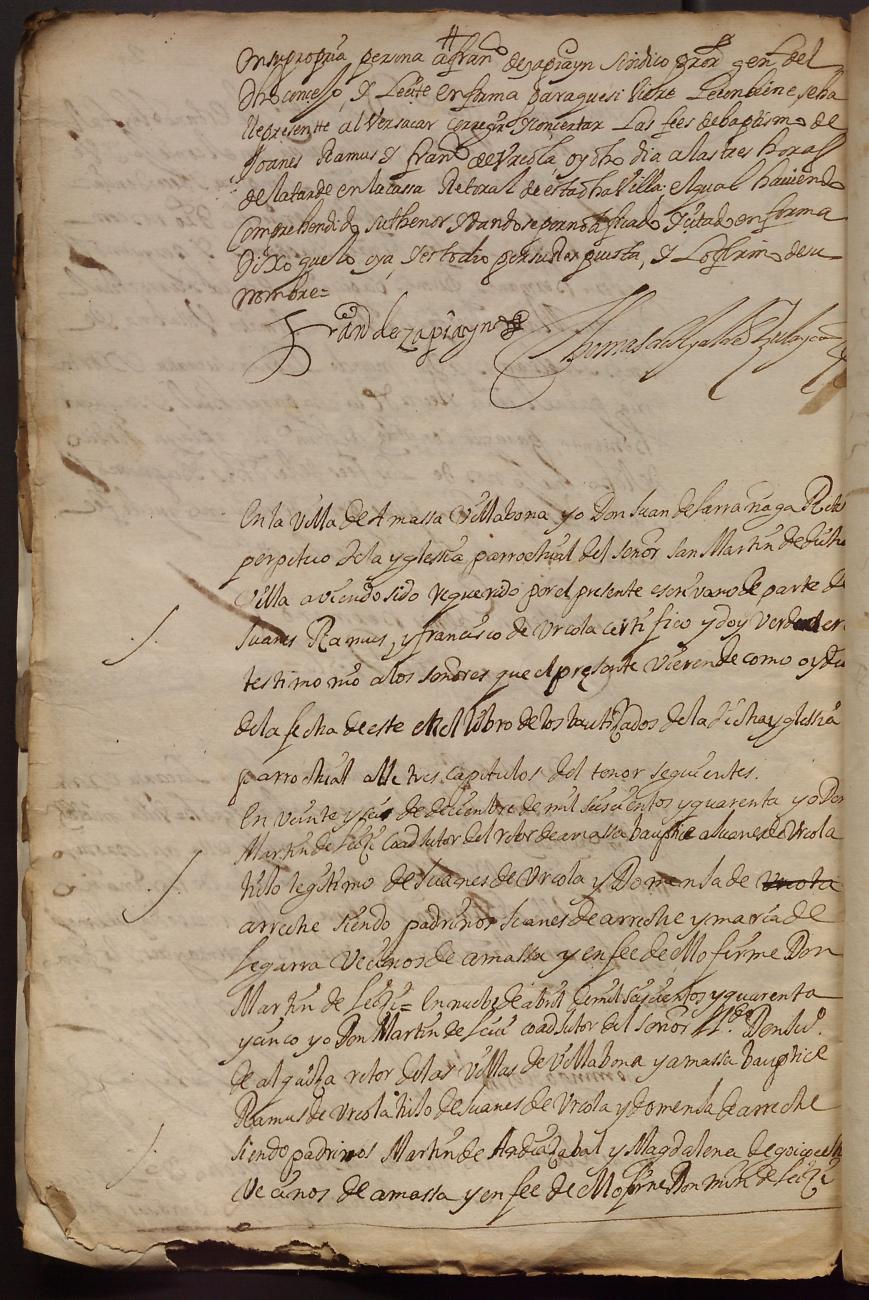 en su propria persona a fran.co de zapiayn sindico pror genl del
dho concejo, y le cite en forma para que si viere le conbiene, se ha
lle presente al ver sacar corregir y concertar las fees de baptismo de
Joanes Ramus y franco de Urcola oy dho dia a las tres horas
de la tarde en la cassa Retoral de esta dha Villa; el qual haviendo
comprehendido su thenor y dandose por notificado y citado en forma
Dixo que lo oya, y esto dio por su Respuesta, y lo firmo de su
nombre=
Frando de zapiayn Thomas de
En la villa de Amassa Villabona yo Don Juan de Larranaga Retor
perpetuo de la yglessia parrochial del señor San Martin de dicha
villa aviendo sido requerido por el presente escrivano de parte de
Juanes Ramus, y francisco de Urcola certifico y doy verdader
testimonio a los señores que el presente vieren de como oy dia
de la fecha de este en el libro de los bautiçados de la dicha yglessia
parrochial alle tres capitulos del tenor seguientes.
En veinte y seis de deciembre de mil seiscientos y quarenta yo Don
Martin de Leiçi coadjutor del retor de amassa baptiçe a Juanes de Urcola
hijo legitimo de Juanes de Urcola y Domensa de Urcola
arreche siendo padrinos Juanes de arreche y maria de
legarra vecinos de amassa y en fee de ello firme Don
Martin de Leiçi= En nuebe de abril de mil seiscientos y quarenta
y cinco yo Don Martin de Leici coadjutor del señor Ldo Don Ju.o
de alquiça retor de las villas de Villabona y amassa baptice
Ramus de Urcola hijo de Juanes de Urcola y domensa de arreche
siendo padrinos Martin de Andiaçabal y Magdalena de
vecinos de amassa y en fee de ello firme Don min de Leiçi